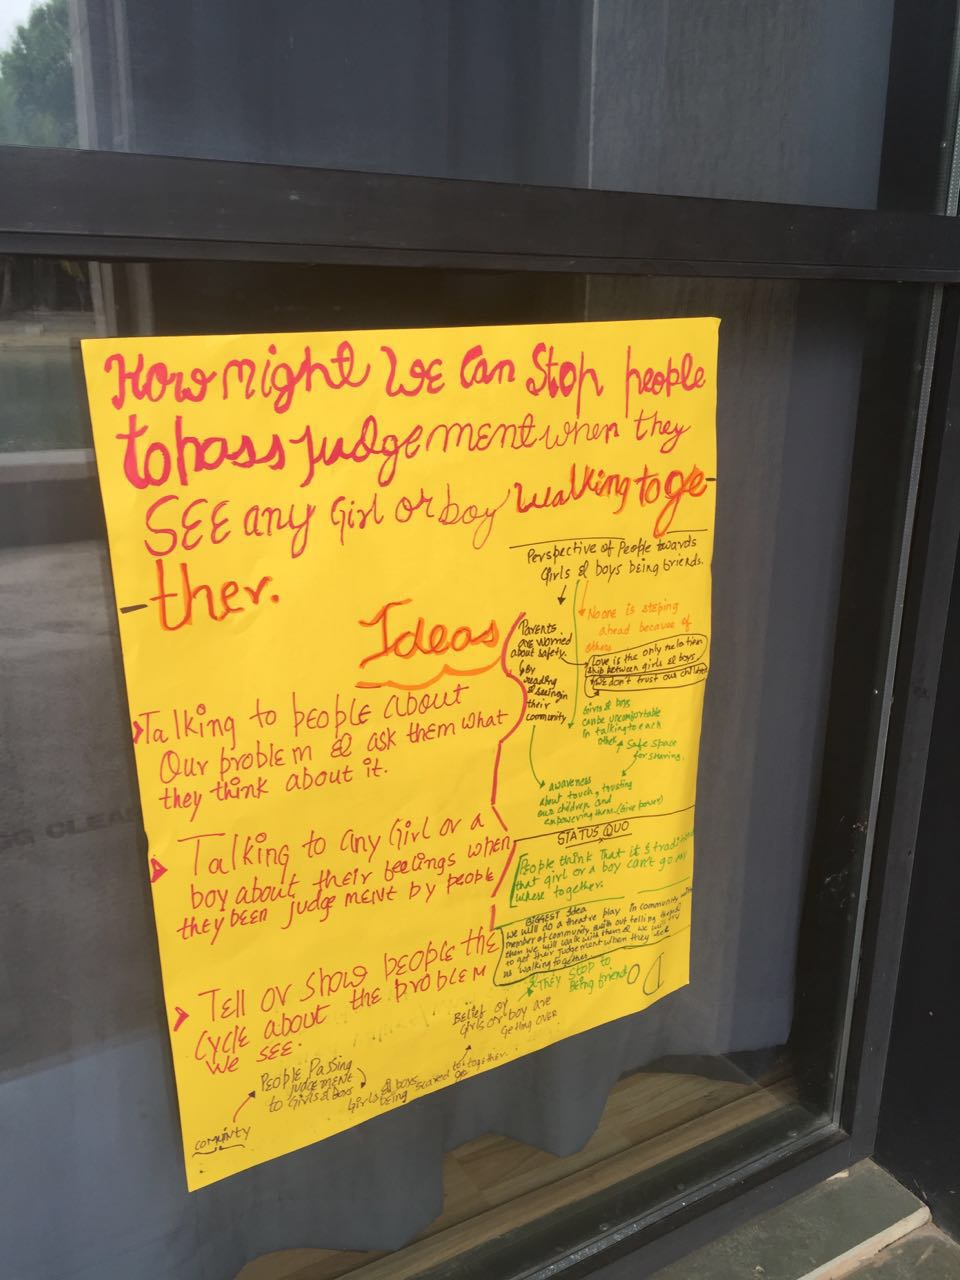 How might WE Can Stop people
to pass judgement when they
SEE any Girl or boy walking toge-
-ther.
Ideas
Talking to people about
Our problem & ask them what
they think about it.
Talking to any Girl or a
boy about their feelings when
they been judgement by people
Tell or show people the
cycle about the problem
we see.
Perspective of People towards
Girls & boys being friends.
Parents
are worried
about safety.
By
reading
& seeing in
their
community
No one is steping
ahead because of
others
Love is the only relation
ship between girls & boys
We don't trust our children
Girls & boys
can be uncomfortable
in talking to each
other
Safe space
for sharing.
awareness
about touch, trusting
our children and
empowering them. (Give power)
STATUS QUO
People think That it's
that girl or a boy can't go any
where together.
BIGGEST Idea
we will do a theatre play in community
member of community with out telling
then we will walk with them & we will
to get their Judgement when they see
us walking together.
& They STOP to
Being friend
Belief of
Girls or boy are
Getting OVER
Girls & boys scared to
being go together.
People Passing
judgement
to Girls & boys
COMUNITY
CLEA